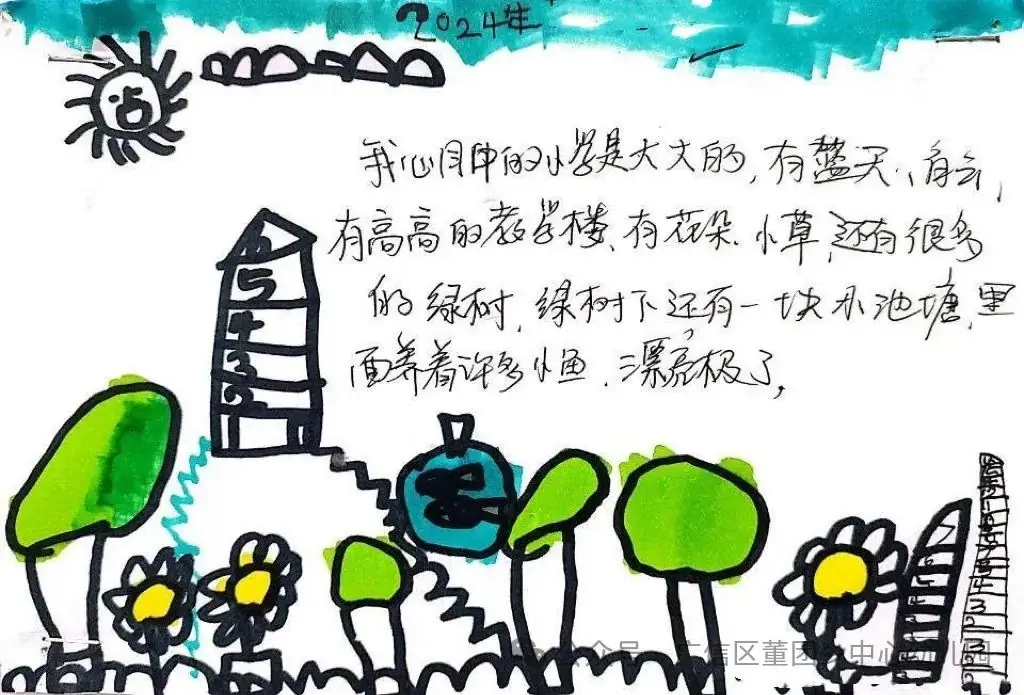 2024年
我心目中的小学是大大的,有蓝天、白云,
有高高的教学楼、有花朵、小草,还有很多
的绿树,绿树下还有一块水池塘,里
面养着许多小鱼,漂亮极了,
6
5
4
3
2
1
公众号 广信区董团乡中心幼儿园